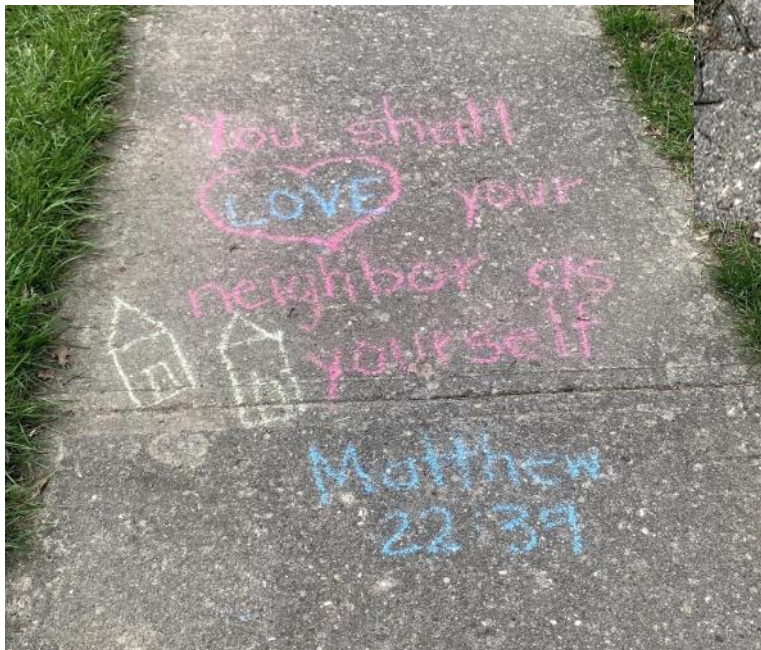 You shall
LOVE your
neighbor as
yourself
Matthew
22:39